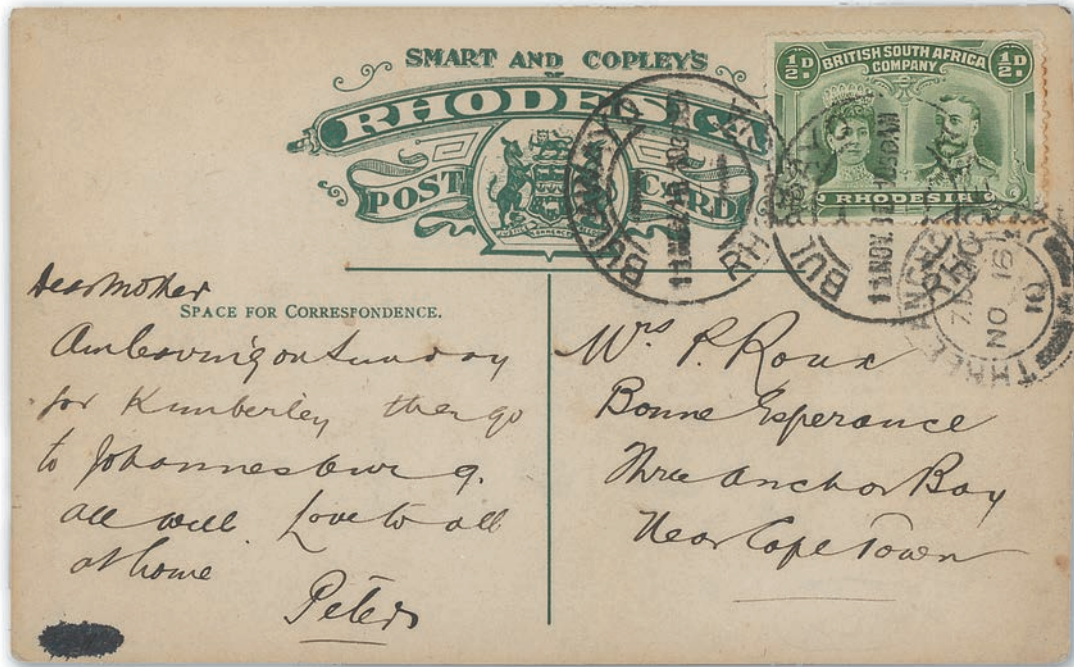 SMART AND COPLEY'S
RHODESIA
POST CARD
½D.
BRITISH SOUTH AFRICA
COMPANY
½D.
RHODESIA
BULAWAYO
RHODESIA
BULAWAYO
11 NOV. 10
THREE ANCHOR
NO 16
10
Dear Mother
SPACE FOR CORRESPONDENCE.
Am leaving on Sunday
for Kimberley then go
to Johannesburg.
all well. Love to all
at home
Peter
Mrs P. Roux
Bonne Esperance
Three Anchor Bay
Near Cape Town